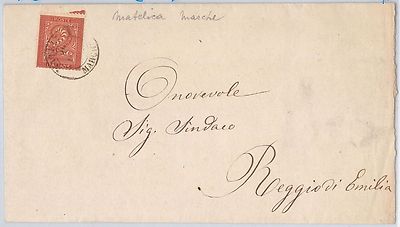 matelica Marche
Onorevole
Sig. Sindaco
Reggio di Emilia